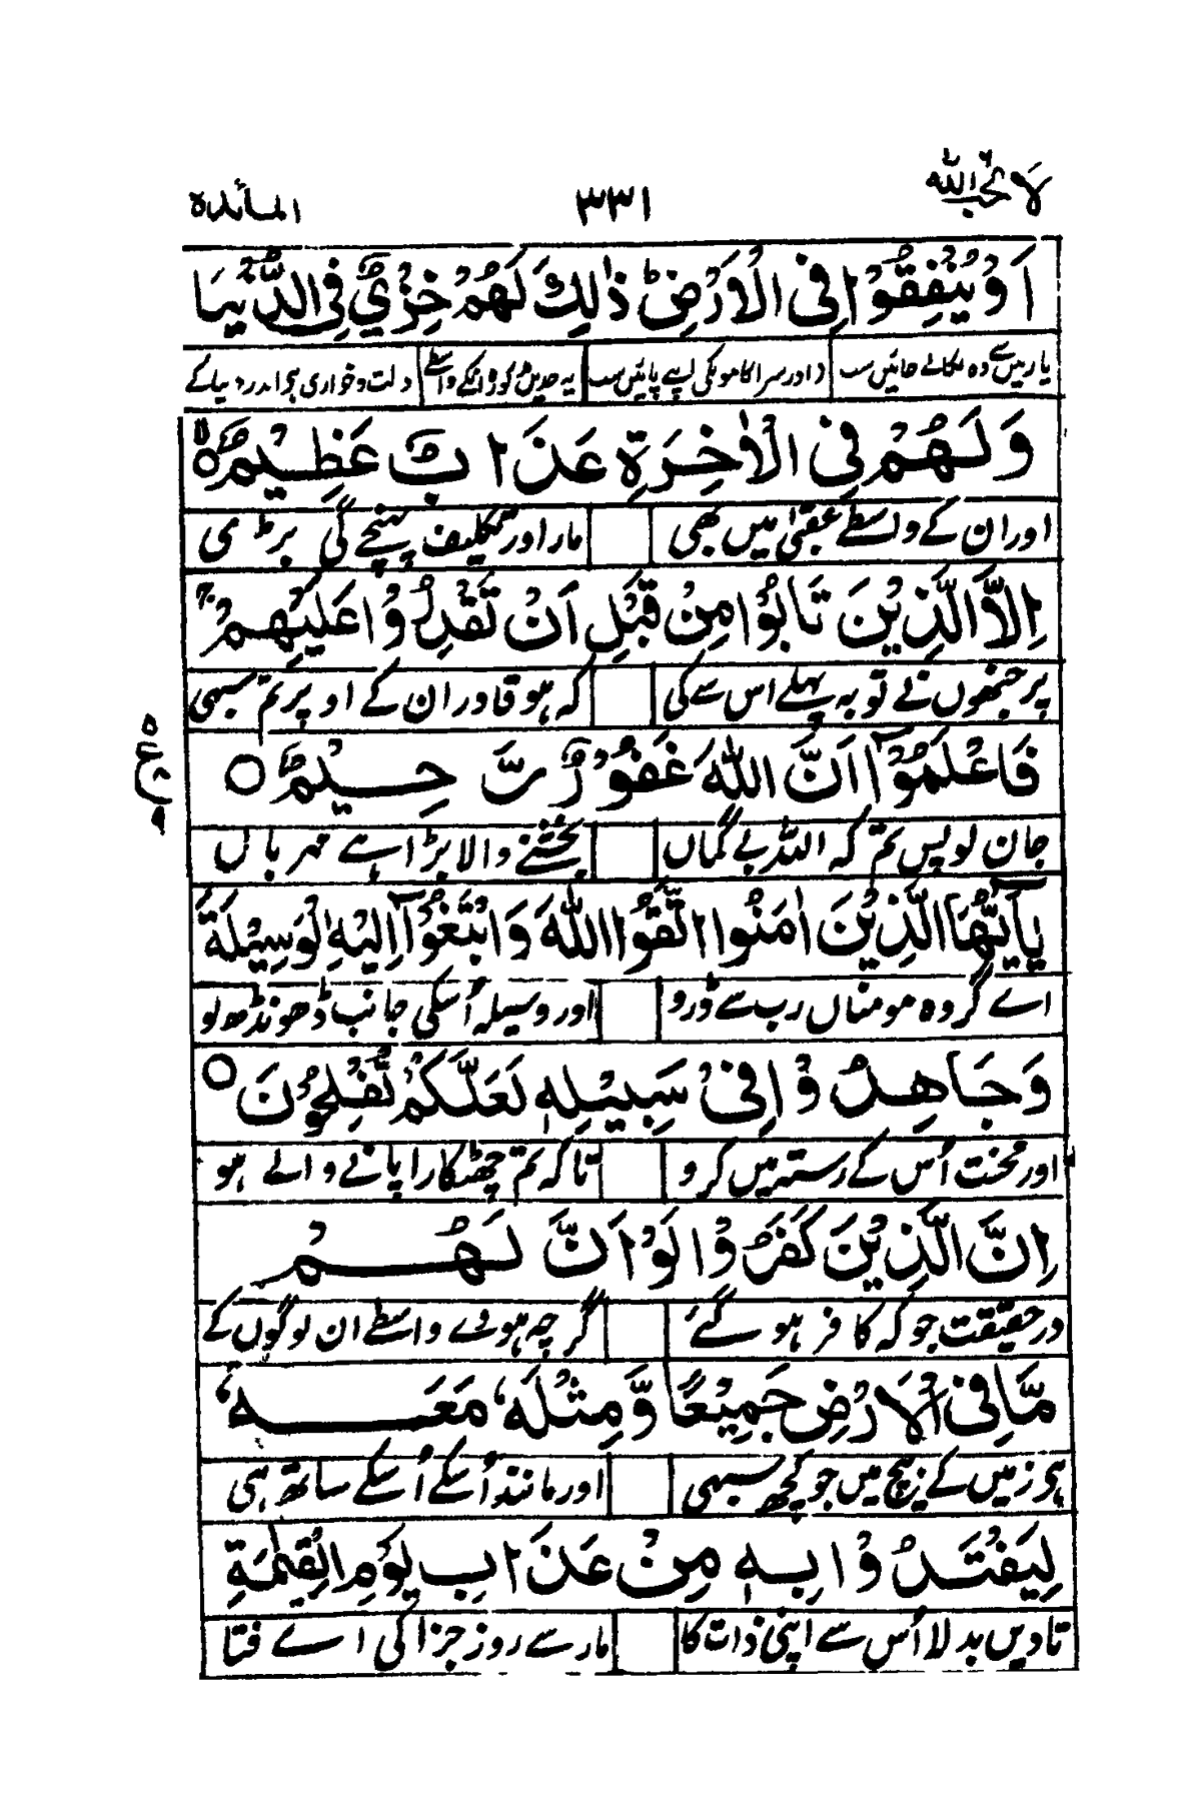 لا يحب الله ٣٣١ المائدة
اَوْ يُنْفَقُوْا فِى الْاَرْضِ ؕ ذٰلِكَ لَهُمْ خِزْىٌ فِى الدُّنْيَا
یا زمیں سے وہ نکالے جائیں سب اور سزا کا موں کی اپنے پائیں سب یہ حدیں گو وانکے واسطے ذلت و خواری ہی اندر دنیا کے
وَلَهُمْ فِى الْاٰخِرَةِ عَذَابٌ عَظِيْمٌ ۙ
اور ان کے واسطے عقبیٰ میں بھی مار اور تکلیف پہنچے گی بڑی
اِلَّا الَّذِيْنَ تَابُوْا مِنْ قَبْلِ اَنْ تَقْدِرُوْا عَلَيْهِمْ ۚ
پر جنھوں نے توبہ پہلے اس سے کی کہ ہو قادر ان کے اوپر تم سبھی
فَاعْلَمُوْۤا اَنَّ اللّٰهَ غَفُوْرٌ رَّحِيْمٌ ○
جان لو پس تم کہ اللہ بے گماں بخشنے والا بڑا ہے مہرباں
۵ ع ۹
يٰۤاَيُّهَا الَّذِيْنَ اٰمَنُوا اتَّقُوا اللّٰهَ وَابْتَغُوْۤا اِلَيْهِ الْوَسِيْلَةَ
اے گروہ مومناں رب سے ڈرو اور وسیلہ اُسکی جانب ڈھونڈھ لو
وَجَاهِدُوْا فِىْ سَبِيْلِهٖ لَعَلَّكُمْ تُفْلِحُوْنَ ○
اور محنت اُس کے رستہ میں کرو تاکہ تم چھٹکارا پانے والے ہو
اِنَّ الَّذِيْنَ كَفَرُوْا لَوْ اَنَّ لَهُمْ
درحقیقت جو کہ کافر ہو گئے گرچہ ہووے واسطے ان لوگوں کے
مَّا فِى الْاَرْضِ جَمِيْعًا وَّمِثْلَهٗ مَعَهٗ
ہی زمیں کے بیچ میں جو کچھ سبھی اور مانند اُسکے اُسکے ساتھ ہی
لِيَفْتَدُوْا بِهٖ مِنْ عَذَابِ يَوْمِ الْقِيٰمَةِ
تا دیں بدلا اُس سے اپنی ذات کا مار سے روز جزا کی اے فتا